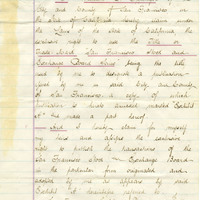 City and County of San Francisco in
the State of California hereby claim under
the Laws of the State of California, the
exclusive right to use the Title or
Trade Mark San Francisco Stock and
Exchange Board being the title
used by me to designate a publication
used by me in said City and County
of San Francisco, a copy of which
publication is hereto annexed marked "Exhibit
A" & made a part hereof.
And I hereby claim for myself
the exclusive
right to publish the transactions of the
San Francisco Stock Exchange Board
in the particular form originated and
adopted by me as appears by said
Exhibit A